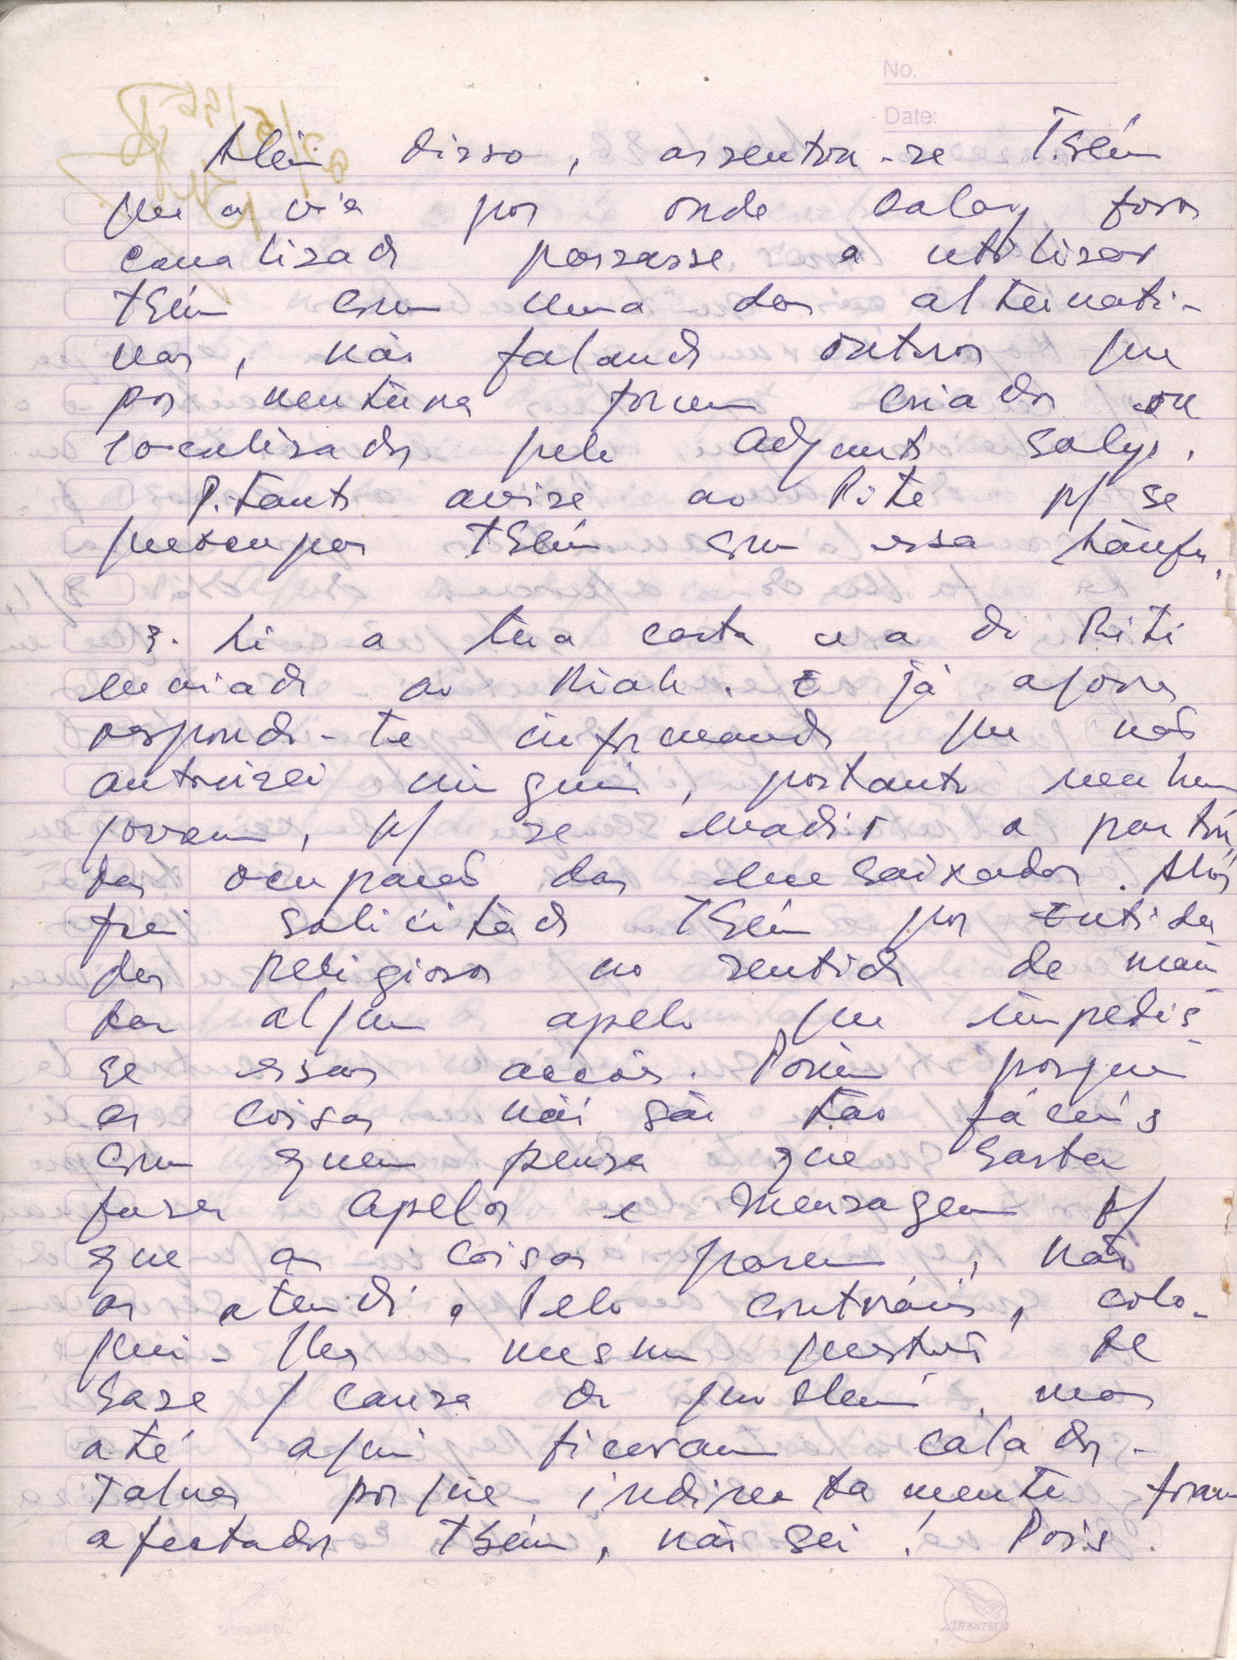 No.
Date:
Além disso, assentou-se tbém
que a via por onde Galaxy fora
canalizado passasse a utilizar
tbém como uma das alternati-
vas, não falando outros que
por ventura forem criados ou
localizados pelo Adjunto
P.tanto avise ao Rite p/ se
preocupar tbém com essa tarefa.
3. Li a tua carta e a do Riti
enviado ao Riak. E já agora
respondo-te informando que não
autorizei ninguém, portanto nenhum
jovem, p/ se evadir a partir
das ocupações das embaixadas. Aliás
fui solicitado tbém por Entida
des religiosas no sentido de man
dar algum apelo que impedis
se essas acções. Porém porque
as coisas não são tão fáceis
com quem pensa que basta
fazer apelos e mensagem p/
que as coisas parem, não
os atendi. Pelo contrário, colo-
quei-lhes mesmo questão de
base / causa do problema, mas
até aqui ficaram calados.
Talvez porque indirectamente foram
afectados tbém, não sei! Pois